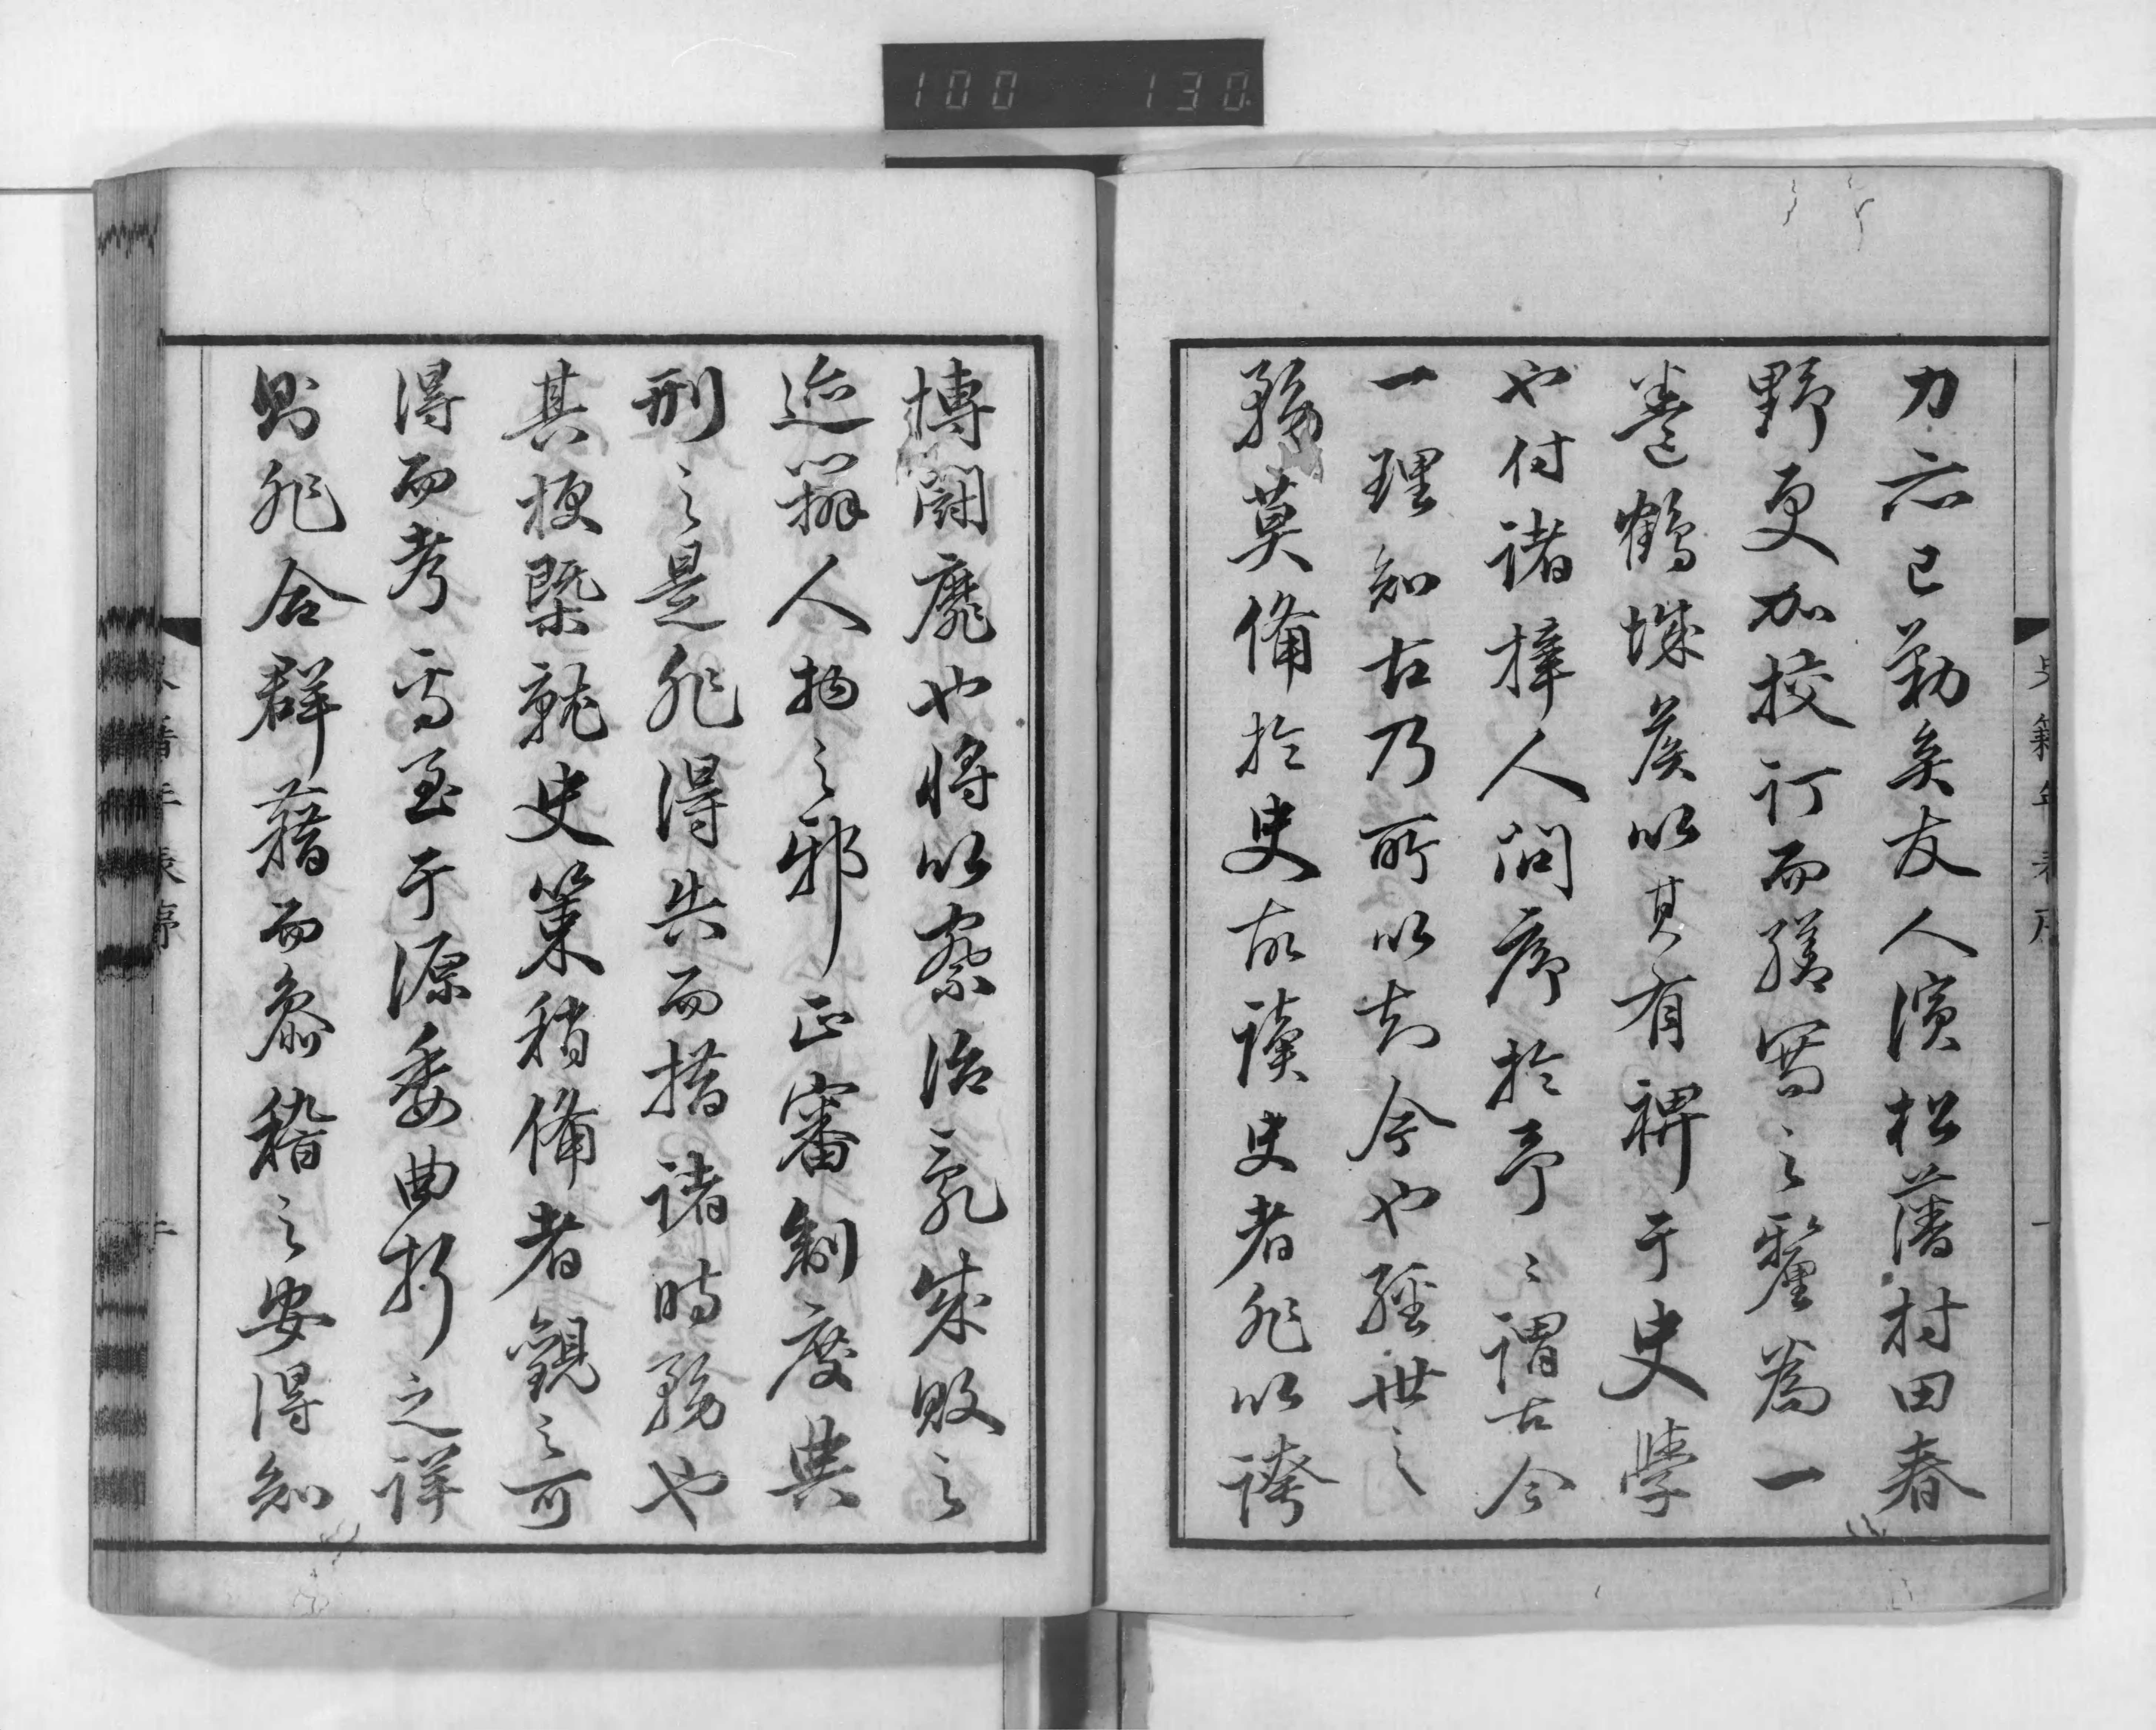 100 130
史籍年表序
一
力亦已勤矣友人濱松藩村田春
野更加挍訂而繕寫之釐為一
卷鶴城矦以其有裨于史學
也付諸梓人問序於予々謂古今
一理知古乃所以知今也經世之
務莫備於史故讀史者非以誇
博鬪靡也將以察治亂成敗之
迹辯人物之邪正審制度典
刑之是非得失而措諸時務也
其梗槩就史策稍備者觀之可
得而考焉至于源委曲折之詳
則非合群藉而叅稽之安得知